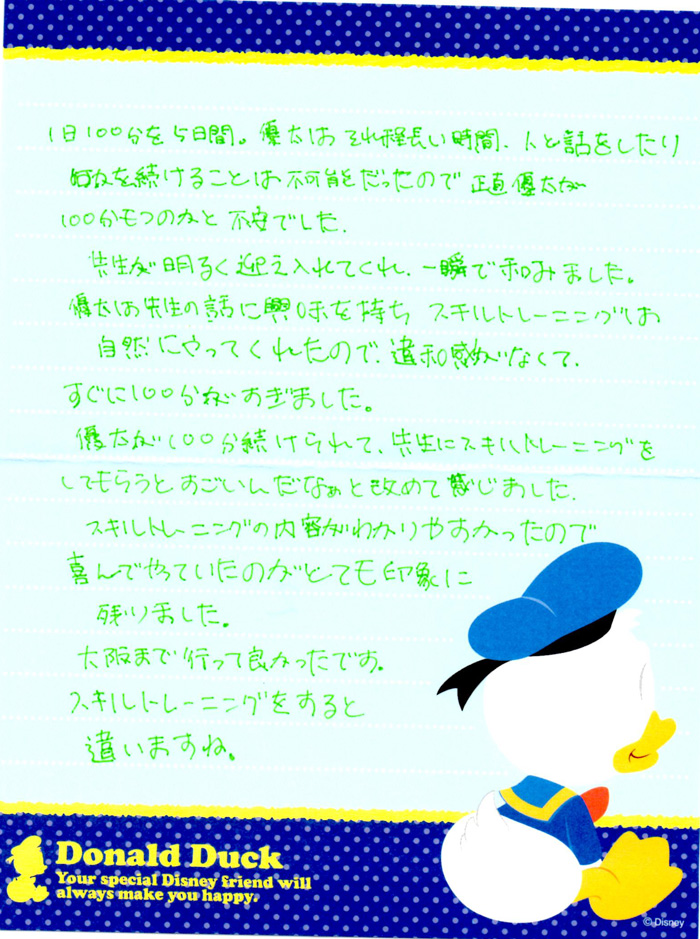 1日100分を5日間。優太は それ程長い時間、人と話をしたり
何かを続けることは不可能だったので 正直優太が
100分もつのかと 不安でした.
先生が明るく迎え入れてくれ、一瞬で和みました。
優太は先生の話に興味を持ち スキルトレーニングは
自然にやってくれたので、違和感がなくて、
すぐに100分がすぎました。
優太が100分続けられて、先生にスキルトレーニングを
してもらうとすごいんだなぁと改めて感じました.
スキルトレーニングの内容がわかりやすかったので
喜んでやっていたのがとても印象に
残りました。
大阪まで行って良かったです。
スキルトレーニングをすると
違いますね。
Donald Duck
Your special Disney friend will
always make you happy.
© Disney